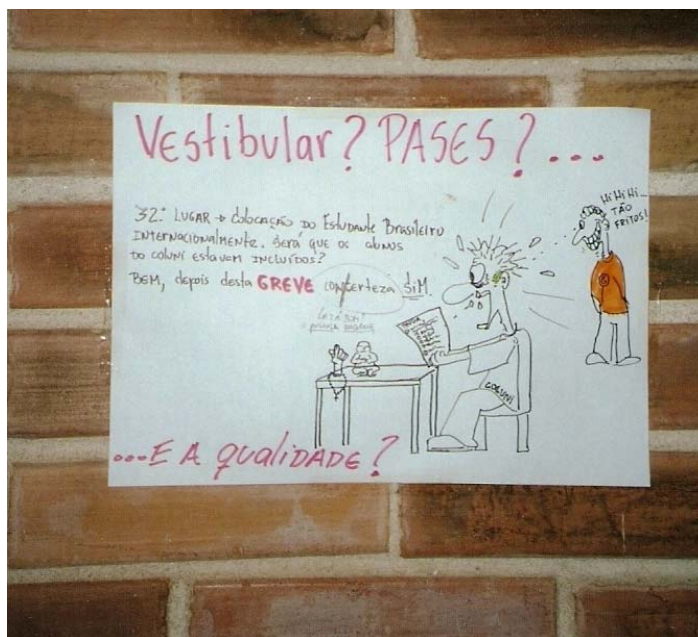 Vestibular? PASES?...
32.º LUGAR → Colocação do Estudante Brasileiro
INTERNACIONALMENTE. Será que os alunos
do COLUNI estavam incluídos?
BEM, depois desta GREVE concerteza SIM.
Hi Hi Hi...
TÃO
FRITOS!
COLUNI
...E A qualidade?